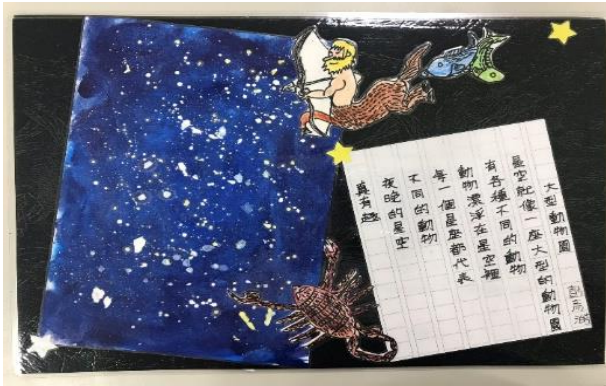 大型動物園
星空就像一座大型的動物園
有各種不同的動物
動物漂浮在星空裡
每一個星座都代表
不同的動物
夜晚的星空
真有趣